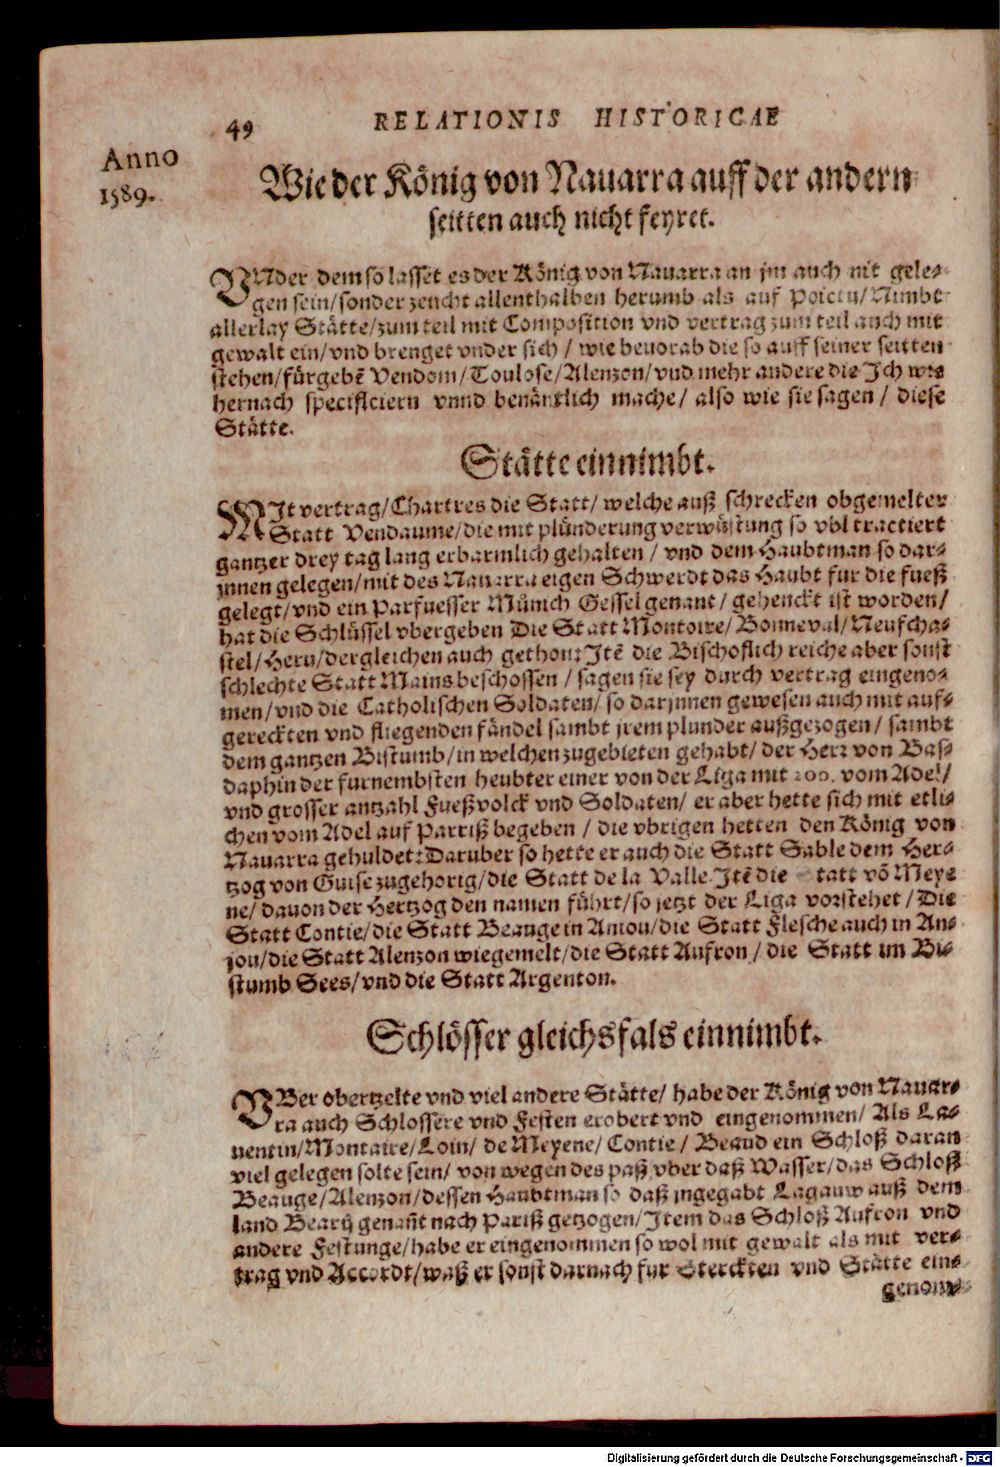 49 RELATIONIS HISTORICAE
Anno
1589.
Wie der König von Nauarra auff der andern
seitten auch nicht feyret.
VNder dem so lasset es der König von Nauarra an jm auch nit gele-
gen sein/ sonder zeucht allenthalben herumb als auf Poictu/ Nimbt
allerlay Stätte/ zum teil mit Composition vnd vertrag zum teil auch mit
gewalt ein/ vnd brenget vnder sich / wie beuorab die so auff seiner seitten
stehen/ fürgebẽ Vendom/ Toulose/ Alenzon/ vnd mehr andere die Ich wie
hernach specificiern vnnd benäntlich mache/ also wie sie sagen / diese
Stätte.
Stätte einnimbt.
MIt vertrag/ Chartres die Statt/ welche auß schrecken obgemelter
Statt Vendaume/ die mit plünderung verwüstung so vbl tractiert
gantzer drey tag lang erbarmlich gehalten / vnd dem Haubtman so dar-
jnnen gelegen/ mit des Nauarra eigen Schwerdt das Haubt fur die fueß
gelegt/ vnd ein Parfuesser Münich Gessel genant/ gehenckt ist worden/
hat die Schlüssel vbergeben Die Statt Montoire/ Bonneval/ Neufcha-
stel/ Heru/ dergleichen auch gethon: Itẽ die Bischoflich reiche aber sonst
schlechte Statt Mains beschossen / sagen sie sey durch vertrag eingeno-
men/ vnd die Catholischen Soldaten/ so darjnnen gewesen auch mit auf-
gereckten vnd fliegenden fändel sambt jrem plunder außgezogen/ sambt
dem gantzen Bistumb/ in welchen zugebieten gehabt/ der Herr von Bas-
daphin der furnembsten heubter einer von der Liga mit 200. vom Adel/
vnd grosser antzahl Fueßvolck vnd Soldaten/ er aber hette sich mit etli-
chen vom Adel auf Parriß begeben / die vbrigen hetten den König von
Nauarra gehuldet: Daruber so hette er auch die Statt Sable dem Her-
tzog von Guise zugehorig/ die Statt de la Valle. Itẽ die tatt võ Meye
ne/ dauon der Hertzog den namen führt/ so jetzt der Liga vorstehet / Die
Statt Contie/ die Statt Beauge in Aniou/ die Statt Flesche auch in An-
jou/ die Statt Alenzon wiegemelt/ die Statt Aufron / die Statt im Bi-
stumb Sees/ vnd die Statt Argenton.
Schlösser gleichsfals einnimbt.
VBer obertzelte vnd viel andere Stätte/ habe der König von Nauar-
ra auch Schlossere vnd Festen erobert vnd eingenommen/ Als La-
uentin/ Montaire/ Loin/ de Meyene/ Contie / Beaud ein Schloß daran
viel gelegen solte sein/ von wegen des paß vber daß Wasser/ das Schloß
Beauge/ Alenzon/ dessen Haubtman so daß jngegabt Lagauw auß dem
land Bearũ genañt nach Pariß getzogen/ Item das Schloß Aufron vnd
andere Festunge/ habe er eingenommen so wol mit gewalt als mit ver-
trag vnd Accordt/ waß er sonst darnach fur Sterckten vnd Stätte ein-
genom-
Digitalisierung gefördert durch die Deutsche Forschungsgemeinschaft - DFG